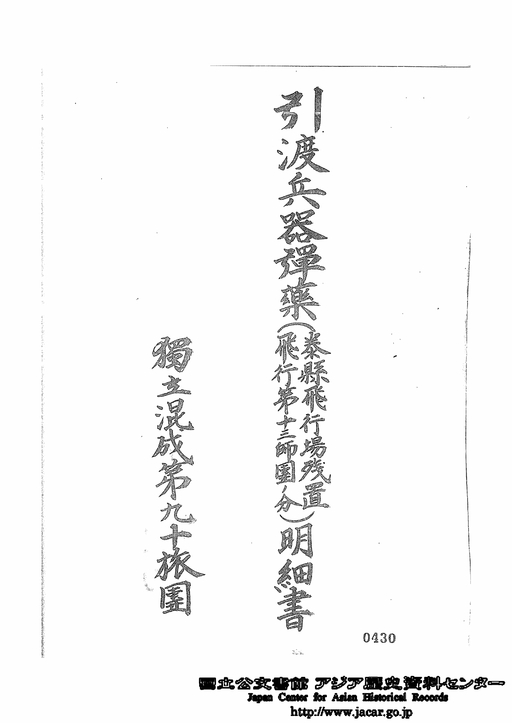 引渡兵器彈藥(泰縣飛行場残置飛行第十三師團ノ分)明細書
獨立混成第九十旅團
0430
国立公文書館 アジア歴史資料センター
Japan Center for Asian Historical Records
http://www.jacar.go.jp